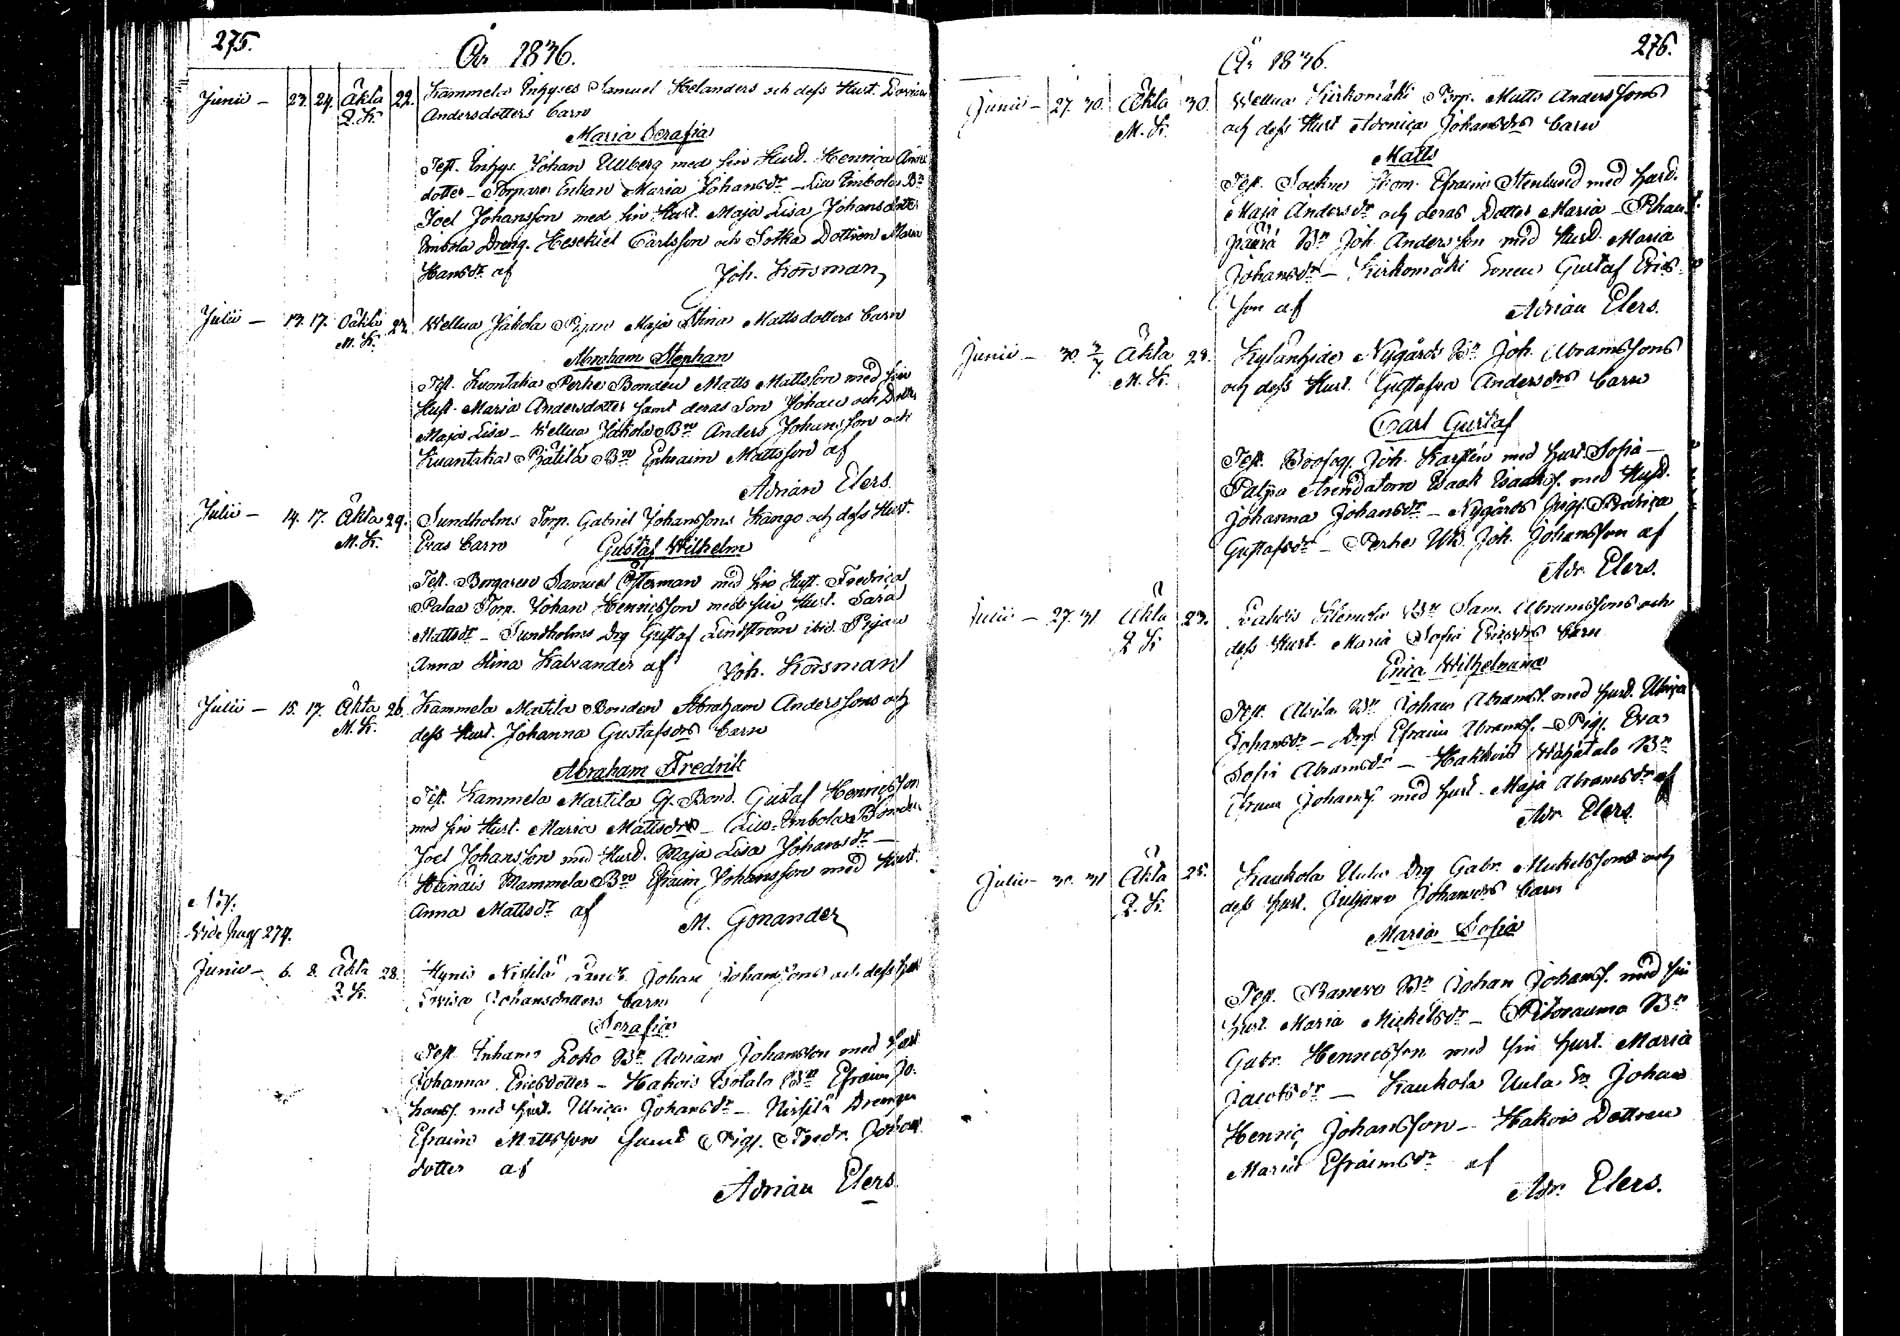 275.
År 1836.
Junii – 23. 24. Äkta 22. Kammela Inhyses Samuel Helanders och dess Hust. Lovisa
Q. K. Andersdotters barn
Maria Serafia
Test. Inhys. Johan Ullberg med sin Hust. Henrica Anders
dotter – Torpare Enkan Maria Johansdr – Lill Embola Bn
Joel Johansson med sin Hust. Maja Lisa Johansdotter
Embola Dreng. Hesekiel Carlsson och Sotka Dottren Maria
Hansdr af Joh. Korsman
Julii – 13. 17. Oäkta 23. Wellua Jakola Pigan Maja Stina Mattsdotters barn
M. K.
Abraham Stephan
Test. Kuontaka Perho Bonden Matts Mattsson med sin
Hust. Maria Andersdotter samt deras Son Johan och Dotter
Maja Lisa – Wellua Jakola Bn Anders Johansson och
Kuantaka Pätilä Bn Ephraim Mattsson af
Adrian Elers.
Julii – 14. 17. Äkta 29. Sundholms Torp. Gabriel Johanssons Kango och dess Hust.
M. K. Evas barn Gustaf Wilhelm
Test. Borgaren Samuel Österman med sin Hust. Fredrica
Palaa Torp. Johan Henricsson med sin Hust. Sara
Mattsdr – Sundholms Drg Gustaf Lindström ibid. Pigan
Anna Stina Kalvander af Joh. Korsman
Julii – 15. 17. Äkta 26. Kammela Martila Bonden Abraham Anderssons och
M. K. dess Hust. Johanna Gustafsdrs barn
Abraham Fredrik
Test. Kammela Martila G. Bond. Gustaf Henricsson
med sin Hust. Maria Mattsdr – Lill-Embola Bonden
Joel Johansson med Hust. Maja Lisa Johansdr –
Heinäis Mammela Bn Efraim Johansson med Hust.
Anna Mattsdr af M. Gonander
Vide pag 274.
Junii – 6. 8. Äkta 28. Hynis Johan Johanssons och dess Hust
Q. K. Lovisa Johansdotters barn
Serafia
Test. Loko Bn Adrian Johansson med Hust
Johanna Ericsdotter – Hakois Isotalo Bn Efraim Jo-
hanss. med Hust. Ulrica Johansdr – Drengen
Efraim Mattsson samt Pig. Fredr. Johans
dotter af
Adrian Elers
276.
År 1836.
Junii – 27. 30. Äkta 30. Wellua Kirkomäki Torp. Matts Anderssons
M. K. och dess Hust Johansdrs barn
Matts
Test. Sockne Skom. Efraim Stenlund med Hust.
Maja Andersdr och deras Dotter Maria –
Bn Joh. Andersson med Hust. Maria
Johansdr – Kirkomäki Sonen Gustaf Erics-
son af Adrian Elers.
Junii – 30. 3/7 Äkta 28. Nygårds Bn Joh. Abramssons
M. K. och dess Hust. Gustafva Andersdrs barn
Carl Gustaf
Test. Joh. Karstén med Hust. Sofia –
Arendatorn Isaak Isaakss. med Hust.
Johanna Johansdr – Nygårds Pig.
Gustafsdr – Perho Joh. Johansson af
Adr. Elers.
Julii – 27. 31 Äkta 23. Sam. Abramssons och
Q. K dess Hust. Maria Sofia Ericsdrs barn
Erica Wilhelmina
Test. Alsila Bn Johan Abramss. med Hust. Ulrica
Johansdr – Drg Efraim Abramss. – Pig. Eva
Sofia Abramsdr – Hakkois Wähätalo Bn
Johanss. med Hust. Maja Abramsdr af
Adr. Elers.
Julii – 30. 31 Äkta 25. Kaukola Uula Drg Gabr. Mickelssons och
Q. K. dess Hust. Juliana Johansdrs barn
Maria Sofia
Test. Bn Johan Johanss. med sin
Hust. Maria Mickelsdr – Pitoraumo Bn
Gabr. Henricsson med sin Hust. Maria
Jacobsdr – Kaukola Uula Sn Johan
Henric Johansson – Hakois Dottren
Maria Efraimsdr af
Adr. Elers.